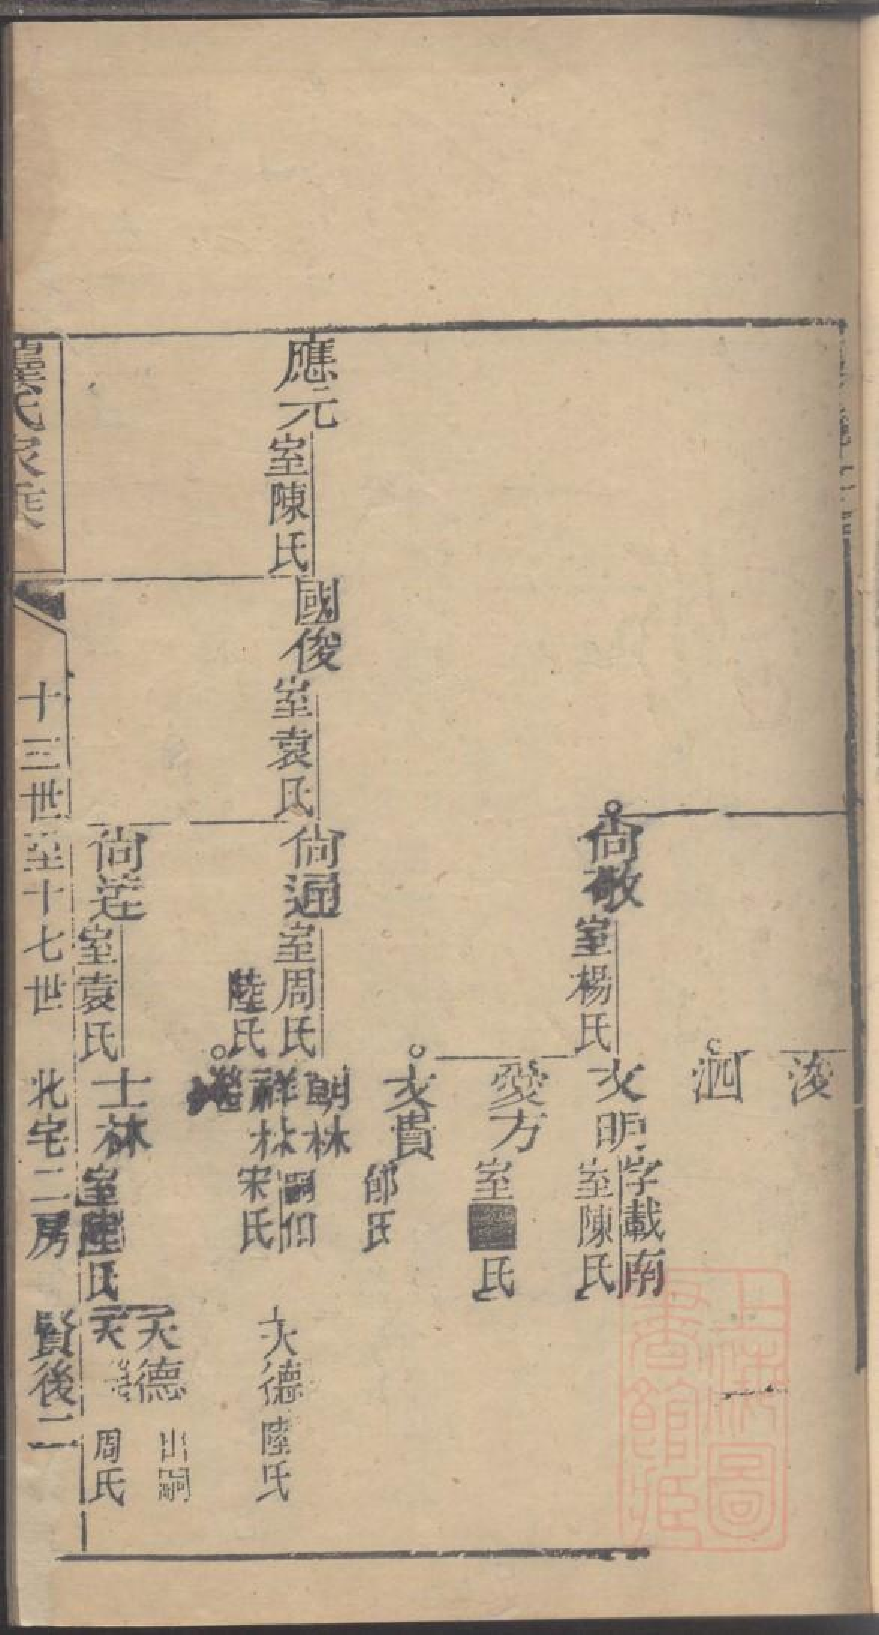 浚
泗
尙敬 室楊氏
文明 字載南 室陳氏
愛方 室 氏
文貴 郎氏
應元 室陳氏
國俊 室袁氏
尙通 室周氏 陸氏
朗林
祥林 嗣 宋氏
天德 陸氏
尙 室袁氏
士林 室陸氏
天德 出嗣
天 周氏
龔氏家乘
十三世至十七世 北宅二房 賢後二
上海圖書館藏